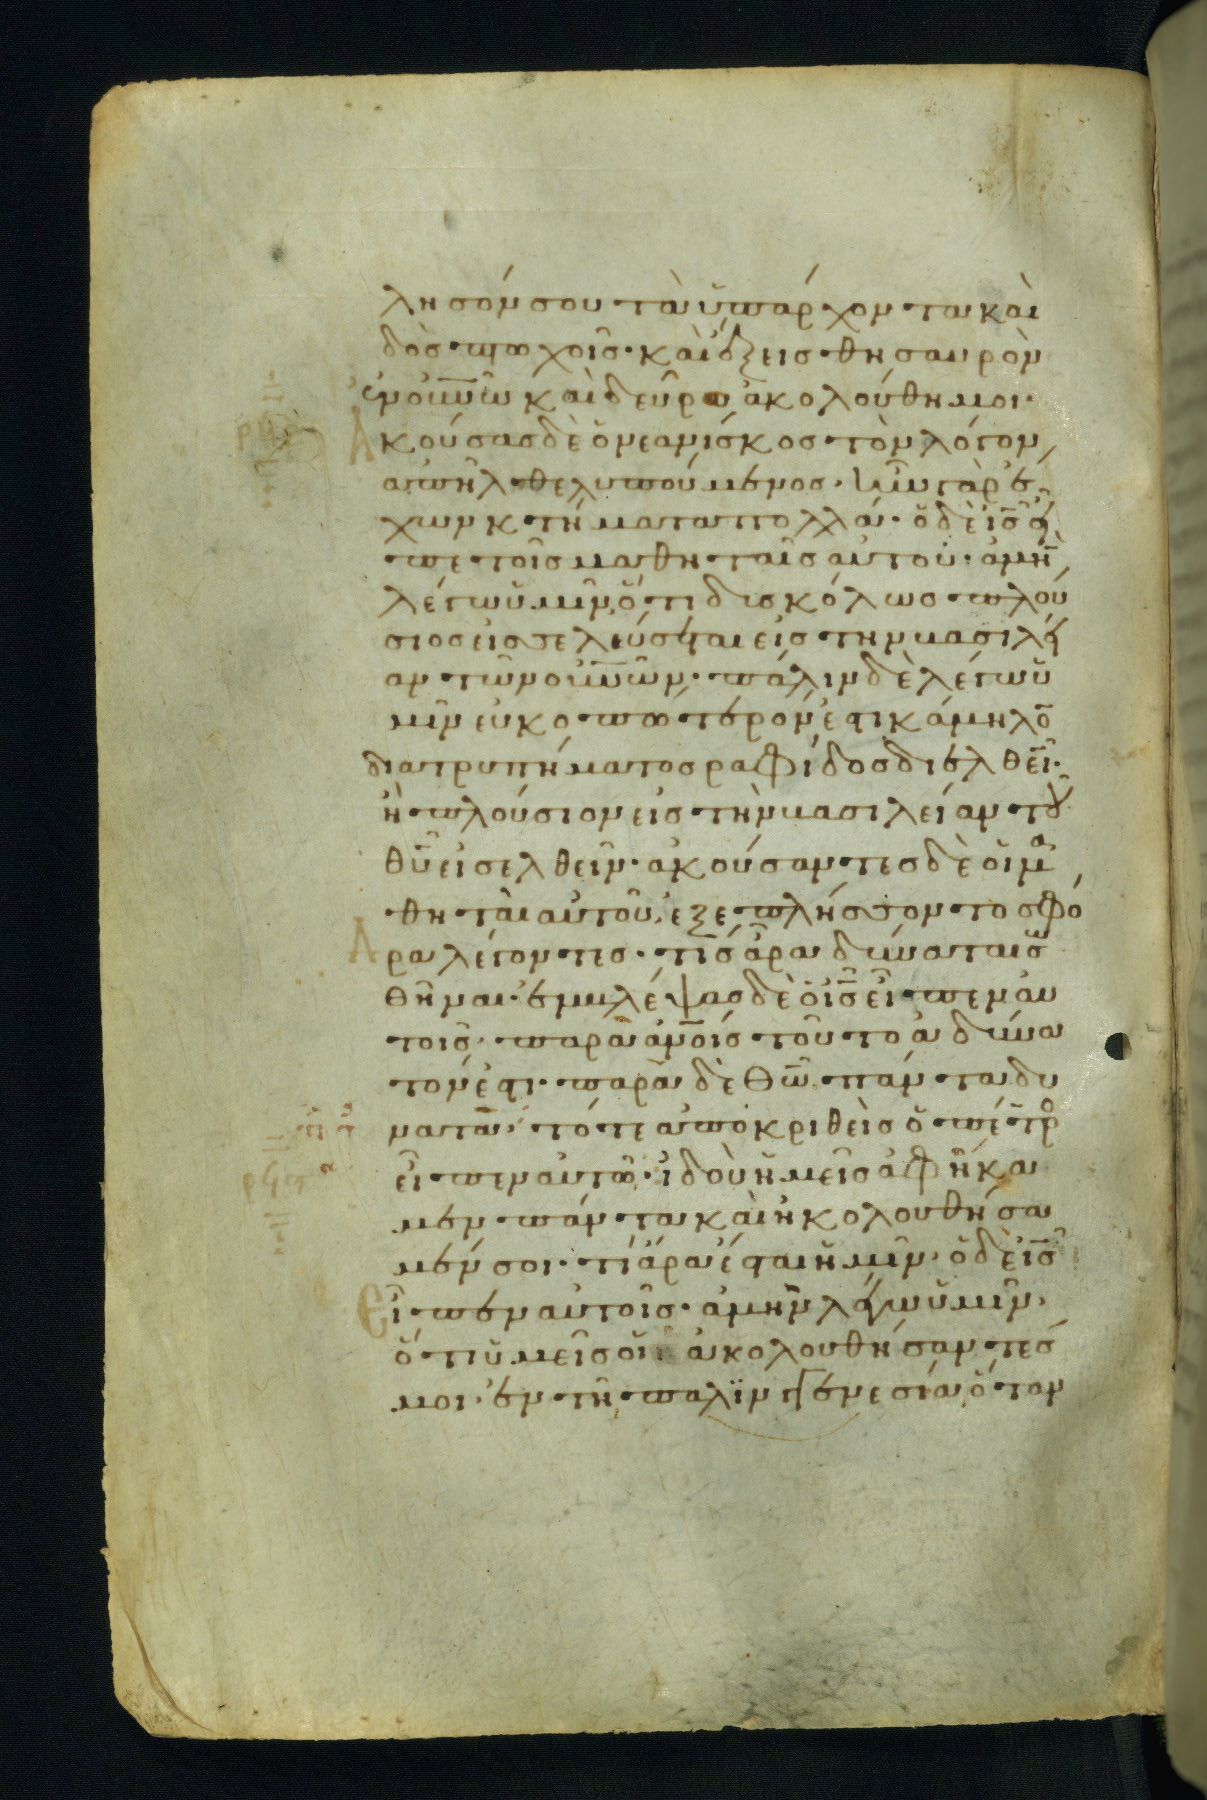 λησόν σου τὰ ὑπάρχοντα καὶ
δὸς πτωχοῖς· καὶ ἕξεις θησαυρὸν
ἐν οὐνῶ καὶ δεῦρο ἀκολούθη μοι·
Ἀκούσας δὲ ὁ νεανίσκος τὸν λόγον,
ἀπῆλθε λυπούμενος· ἦν γὰρ ἔ
χων κτήματα πολλά· ὁ δὲ ις εἶ
πε τοῖς μαθηταῖς αὐτοῦ· ἀμὴν
λέγω ὑμῖν ὅτι δισκόλως πλού
σιος εἰσελεύσεται εἰς την βασιλεί
αν τῶν οὐνῶν· πάλιν δὲ λέγω ὑ
μῖν εὐκοπώτερόν ἐστι κάμηλον
διατρυπήματος ραφίδος διελθεῖν·
ἢ πλούσιον εἰς τὴν βασιλείαν τοῦ
θῦ εἰσελθεῖν· ἀκούσαντες δὲ οἱ μα
θηταὶ αὐτοῦ, ἐξεπλήσσοντο σφό
Δρα λέγοντες· τίς ἄρα δύναται σω
θῆναι· ἐμβλέψας δὲ ὁ ις εἶπεν αὐ
τοῖς· παρὰ ἀνοις τοῦτο ἀδύνα
τόν ἐστι· παρὰ δὲ θῶ πάντα δυ
νατὰ· τότε ἀποκριθεὶς ὁ πέτρος
εἶπεν αὐτῶ· ἰδοὺ ἡμεῖς ἀφήκα
μεν πάντα καὶ ἠκολουθήσα
μέν σοι· τί ἄρα ἔσται ἡμῖν· ὁ δὲ ις
Εἶπεν αὐτοῖς· ἀμὴν λέγω ὑμῖν,
ὅτι ὑμεῖς οἱ ἀκολουθήσαντές
μοι· ἐν τῆ παλϊγγενεσία ὅταν